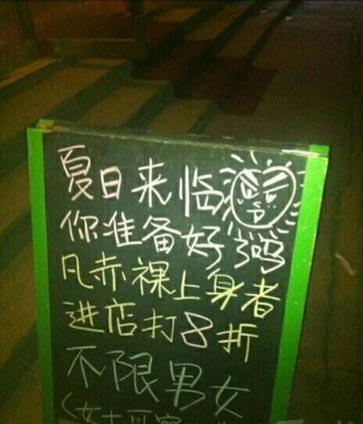 夏日来临
你准备好了吗
凡赤裸上身者
进店打8折
不限男女